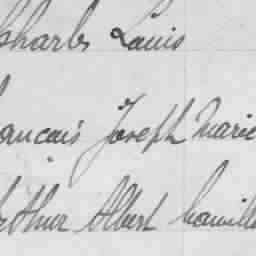 Charles Louis
rançois Joseph Marie
Arthur Albert Camille